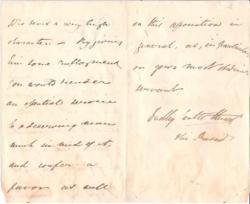 Who bears a very high
character & by giving
him some employment
you would render
an essential service
to a deserving man
much in need of it,
and confer a
favor as well
on this association in
general, as, in particular
on yours most obedient
servant